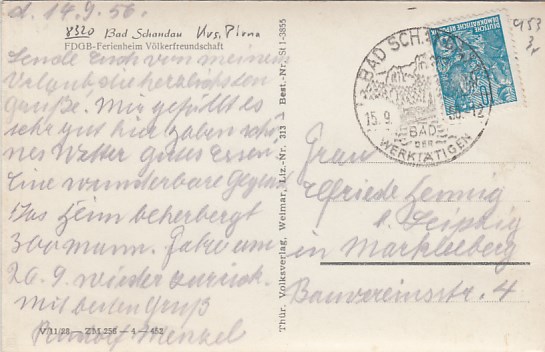 d. 14.9.56.
8320 Bad Schandau Krs. Pirna
FDGB-Ferienheim Völkerfreundschaft
Sende Euch von meinem
Urlaub die herzlichsten
Grüße. Mir gefällt es
sehr gut hier haben schö-
nes Wetter gutes Essen.
Eine wunderbare Gegend
Das Heim beherbergt
300 mann. Fahre am
20.9. wieder zurück.
Mit besten Gruß
Rudolf Menzel
V 11/28 — ZM 256 — 4 — 452
Thür. Volksverlag, Weimar, Liz.-Nr. 313 — Best.-Nr. St I-3855
BAD SCH
15.9. 56.-12
BAD
DER
WERKTÄTIGEN
DEUTSCHE
DEMOKRATISCHE REPUBLIK
10
953
Frau
Elfriede Hennig
b. Leipzig
in Markleeberg
Bauvereinsstr. 4